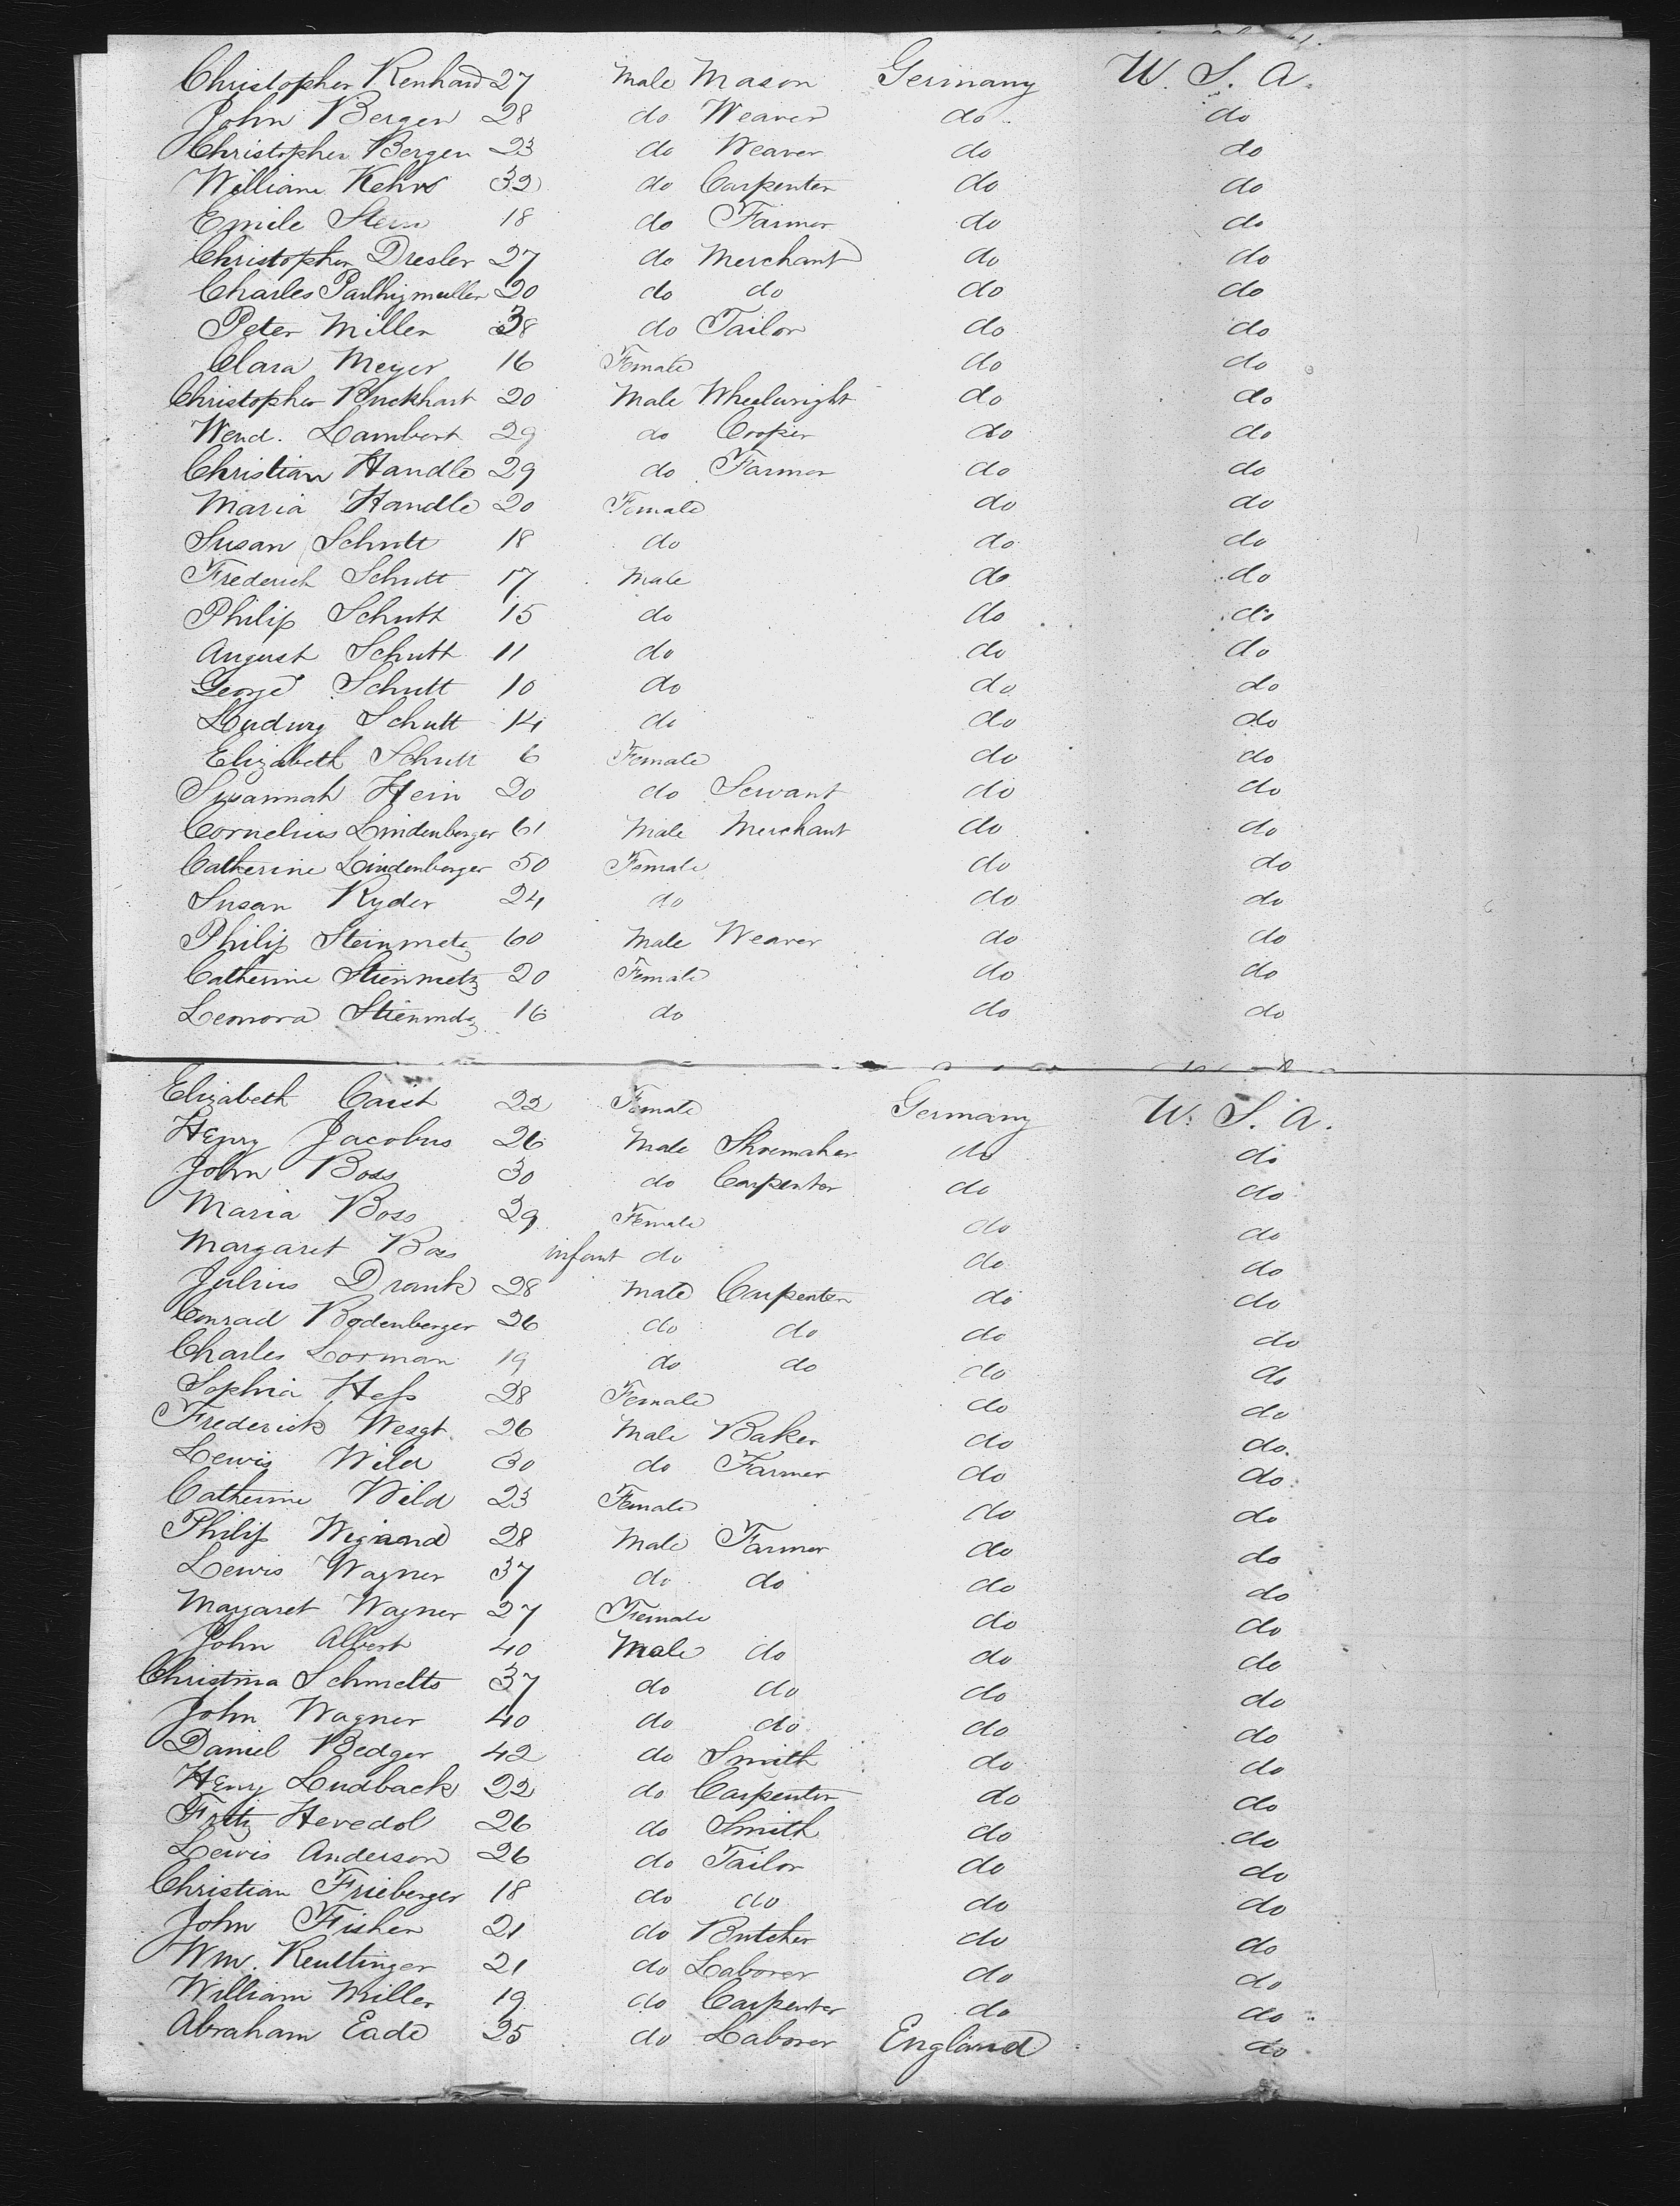 Christopher Renhard 27 Male Mason Germany U. S. A.
John Bergen 28 do Weaver do do
Christopher Bergen 23 do Weaver do do
William Kehrs 32 do Carpenter do do
Emile Stein 18 do Farmer do do
Christopher Dresler 27 do Merchant do do
Charles 20 do do do do
Peter Miller 38 do Tailor do do
Clara Meyer 16 Female do do
Christopher Buckhart 20 Male Wheelwright do do
Wend. Lambert 29 do Cooper do do
Christian Handle 29 do Farmer do do
Maria Handle 20 Female do do
Susan Schutt 18 do do do
Frederich Schutt 17 Male do do
Philip Schutt 15 do do do
August Schutt 11 do do do
George Schutt 10 do do do
Ludwig Schutt 14 do do do
Elizabeth Schutt 6 Female do do
Susannah Hein 20 do Servant do do
Cornelius Lindenberger 61 Male Merchant do do
Catherine Lindenberger 50 Female do do
Susan Ryder 24 do do do
Philip Steinmetz 60 Male Weaver do do
Catherine Stienmetz 20 Female do do
Leonora Stienmetz 16 do do do
Elizabeth Caist 22 Female Germany U. S. A.
Henry Jacobus 26 Male Shoemaker do do
John Boss 30 do Carpenter do do
Maria Boss 29 Female do do
Margaret Boss infant do do do
Julius Drank 28 Male Carpenter do do
Conrad Bodenberger 26 do do do do
Charles Lorman 19 do do do do
Sophia Hess 28 Female do do
Frederick 26 Male Baker do do
Lewis Wild 30 do Farmer do do
Catherine Wild 23 Female do do
Philip Wigand 28 Male Farmer do do
Lewis Wagner 37 do do do do
Margaret Wagner 27 Female do do
John Albert 40 Male do do do
Christina Schmelts 37 do do do do
John Wagner 40 do do do do
Daniel Bedger 42 do Smith do do
Henry Ludback 22 do Carpenter do do
Fritz Heredol 26 do Smith do do
Lewis Anderson 26 do Tailor do do
Christian Frieberger 18 do do do do
John Fisher 21 do Butcher do do
Wm. Reultinger 21 do Laborer do do
William Miller 19 do Carpenter do do
Abraham Eade 25 do Laborer England do